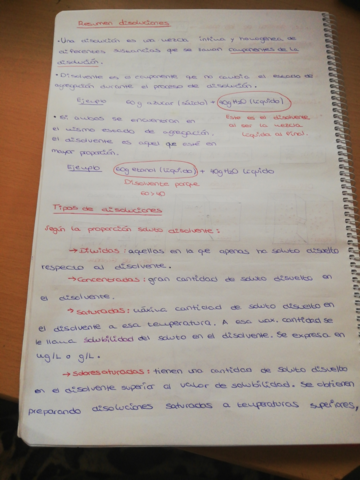 Resumen disoluciones:
• Una disolución es una mezcla íntima y homogénea de
diferentes sustancias que se llaman componentes de la
disolución.
• Disolvente es el componente que no cambia su estado de
agregación durante el proceso de disolución.
Ejemplo: 60g azúcar (sólido) + 40g H2O (líquido)
• Si ambos se encuentran en
el mismo estado de agregación,
el disolvente es aquel que esté en
mayor proporción.
Este es el disolvente
al ser la mezcla
líquida al final.
Ejemplo: 60g etanol (líquido) + 40g H2O líquido
Disolvente porque
60>40
Tipos de disoluciones
Según la proporción soluto disolvente:
→ Diluidas: aquellas en la que apenas no soluto disuelto
respecto al disolvente.
→ Concentradas: gran cantidad de soluto disuelto en
el disolvente.
→ Saturadas: máxima cantidad de soluto disuelto en
el disolvente a esa temperatura. A esa max. cantidad se
le llama solubilidad del soluto en el disolvente. Se expresa en
g/L.
→ Sobresaturadas: tienen una cantidad de soluto disuelto
en el disolvente superior al valor de solubilidad. Se obtienen
preparando disoluciones saturadas a temperaturas superiores,